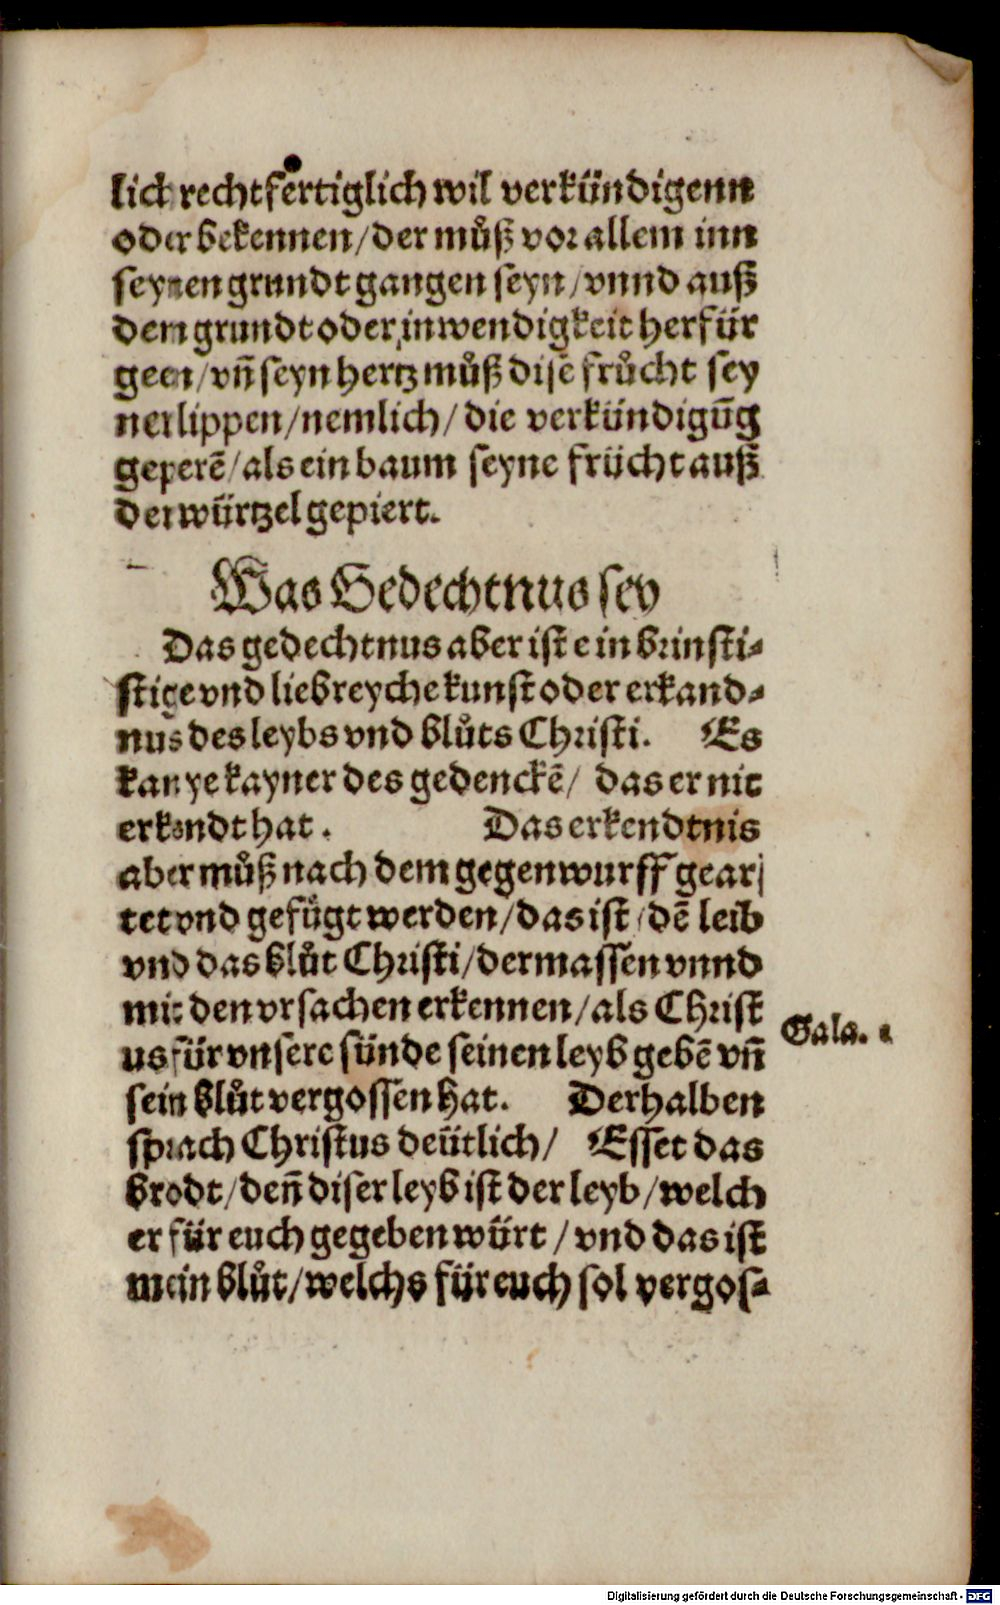 lich rechtfertiglich wil verkündigenn
oder bekennen/der můß vor allem inn
seynen grundt gangen seyn/vnnd auß
dem grundt oder inwendigkeit herfür
geen/vn̄ seyn hertz můß disē frücht sey
ner lippen/nemlich/die verkündigūg
geperē/als ein baum seyne frücht auß
der würtzel gepiert.
Was Gedechtnus sey
Das gedechtnus aber ist ein brinsti⸗
stige vnd liebreyche kunst oder erkand⸗
nus des leybs vnd blůts Christi. Es
kan ye kayner des gedenckē/ das er nit
erkandt hat. Das erkendtnis
aber můß nach dem gegenwurff gear
tet vnd gefügt werden/das ist/dē leib
vnd das blůt Christi/dermassen vnnd
mit den vrsachen erkennen/als Christ
us für vnsere sünde seinen leyb gebē vn̄
Gala.
sein blůt vergossen hat. Derhalben
sprach Christus deütlich/ Esset das
brodt/den̄ diser leyb ist der leyb/welch
er für euch gegeben würt/vnd das ist
mein blůt/welchs für euch sol vergos⸗
Digitalisierung gefördert durch die Deutsche Forschungsgemeinschaft - DFG